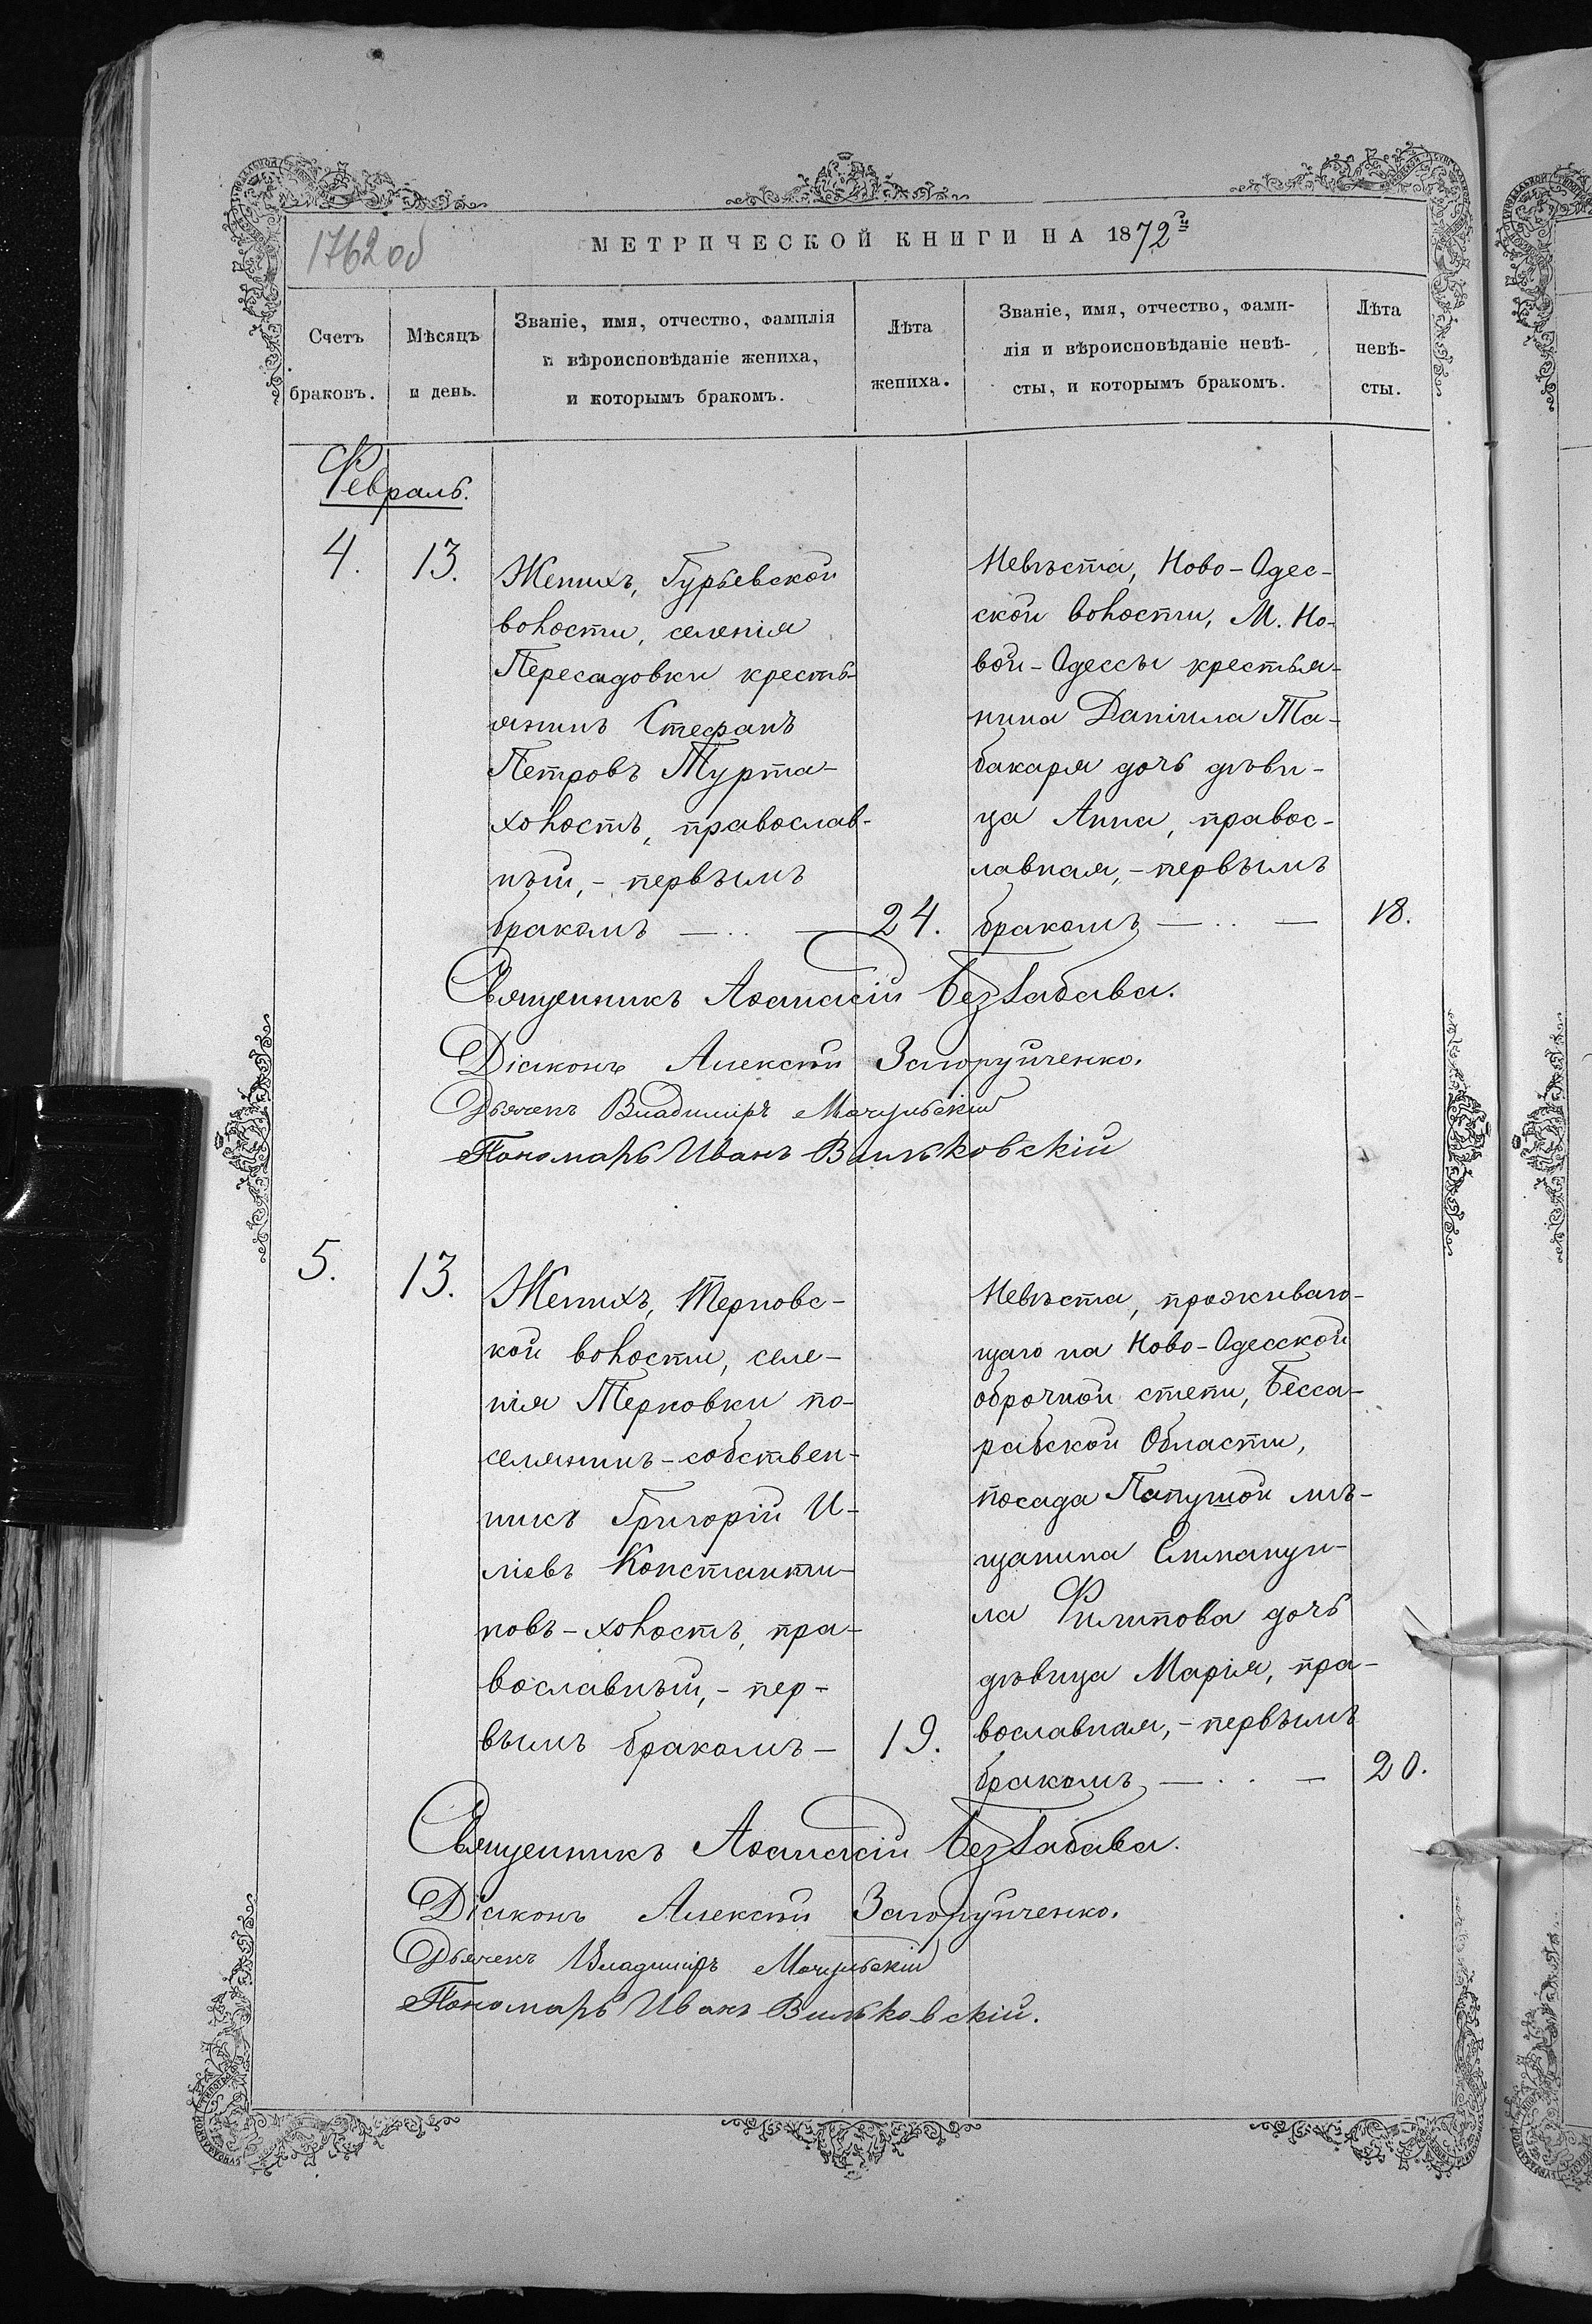 1762 об
МЕТРИЧЕСКОЙ КНИГИ НА 1872й
Счетъ браковъ.
Мѣсяцъ и день.
Званіе, имя, отчество, фамилія
и вѣроисповѣданіе жениха,
и которымъ бракомъ.
Лѣта жениха.
Званіе, имя, отчество, фами-
лія и вѣроисповѣданіе невѣ-
сты, и которымъ бракомъ.
Лѣта невѣ-
сты.
Февраль.
4.
13.
Женихъ, Гурьевской
волости, селенія
Пересадовки кресть-
янинъ Стефанъ
Петровъ Турта-
холостъ, православ-
ный,- первымъ
бракомъ — .. —
24.
Невѣста, Ново-Одес-
ской волости, М. Но-
вой-Одессы крестья-
нина Даніила Та-
бакаря дочь дѣви-
ца Анна, правос-
лавная,- первымъ
бракомъ — .. —
18.
Священникъ Аѳанасій Беззабава.
Діаконъ Алексѣй Загоруйченко.
Дьячекъ Владиміръ Мачульскій
Пономарь Иванъ Вильковскій
5.
13.
Женихъ, Терновс-
кой волости, селе-
нія Терновки по-
селянинъ-собствен-
никъ Григорій И-
ліевъ Константи-
новъ-холостъ, пра-
вославный,- пер-
вымъ бракомъ —
19.
Невѣста, проживаю-
щаго на Ново-Одесской
оброчной степи, Бесса-
рабской Области,
посада Папушой мѣ-
щанина Еммануи-
ла Филипова дочь
дѣвица Марія, пра-
вославная,- первымъ
бракомъ — .. —
20.
Священникъ Аѳанасій Беззабава.
Діаконъ Алексѣй Загоруйченко.
Дьячекъ Владиміръ Мачульскій
Пономарь Иванъ Вильковскій.